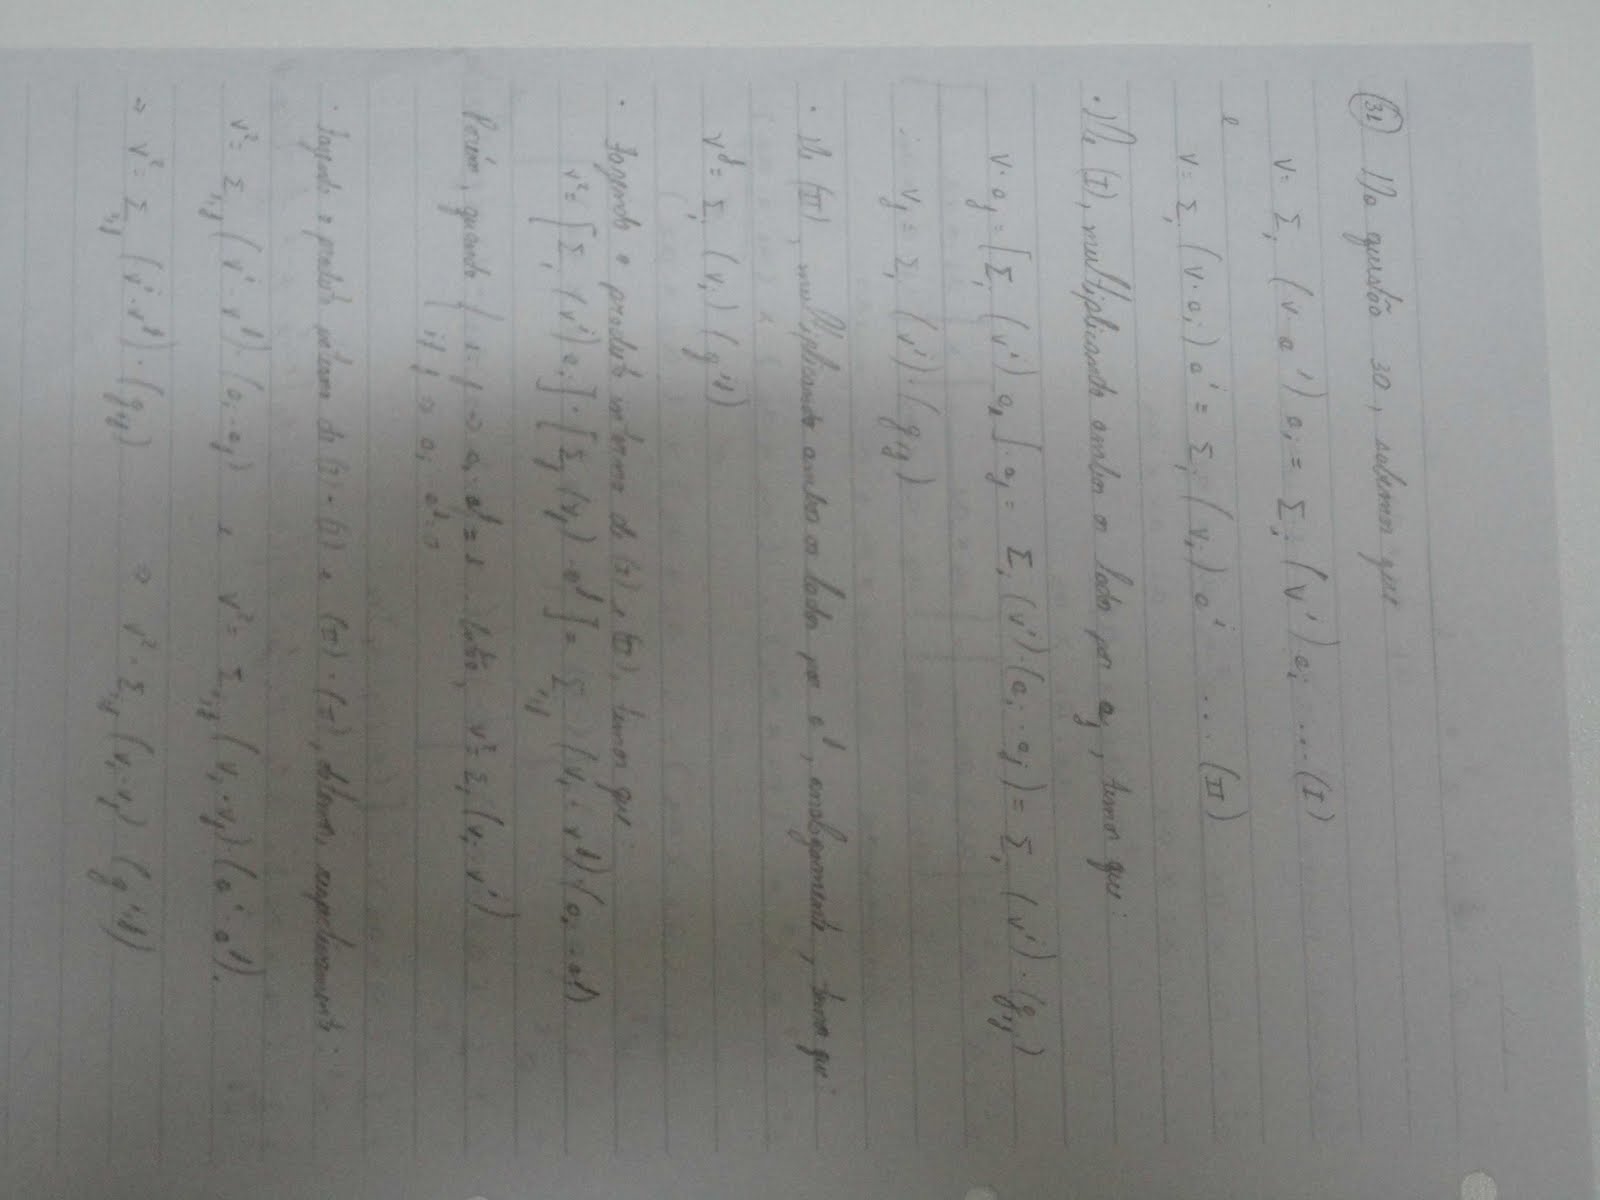 (31) Da questão 30, sabemos que
v = Σi (v · a^i) ai = Σi (v^i) ai ... (I)
e
v = Σi (v · ai) a^i = Σi (vi) a^i ... (II)
· De (I), multiplicando ambos os lados por aj, temos que:
v · aj = [Σi (v^i) ai] · aj = Σi (v^i) · (ai · aj) = Σi (v^i) · (gij)
∴ vj = Σi (v^i) · (gij)
· De (II), multiplicando ambos os lados por a^j, analogamente, temos que
v^j = Σi (vi) (g^ij)
· Fazendo o produto interno de (I) e (II), temos que:
v² = [Σi (v^i) ai] · [Σj (vj) · a^j] = Σi,j (vi · v^j) (ai · a^j)
Porém, quando { i = j ⇒ ai · a^j = 1 . Então, v² = Σi (vi · v^i)
{ i ≠ j ⇒ ai a^j = 0
· Fazendo o produto interno de (I) · (I) e (II) · (II), obtemos, respectivamente:
v² = Σi,j (v^i · v^j) · (ai · aj) e v² = Σi,j (vi · vj) (a^i · a^j).
⇒ v² = Σi,j (v^i · v^j) · (gij) ⇒ v² = Σi,j (vi · vj) (g^ij)